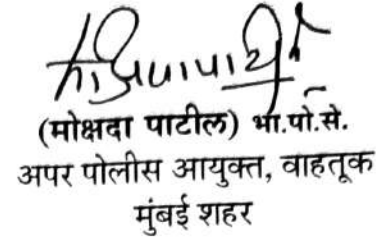 (मोक्षदा पाटील) भा.पो.से.
अपर पोलीस आयुक्त, वाहतूक
मुंबई शहर